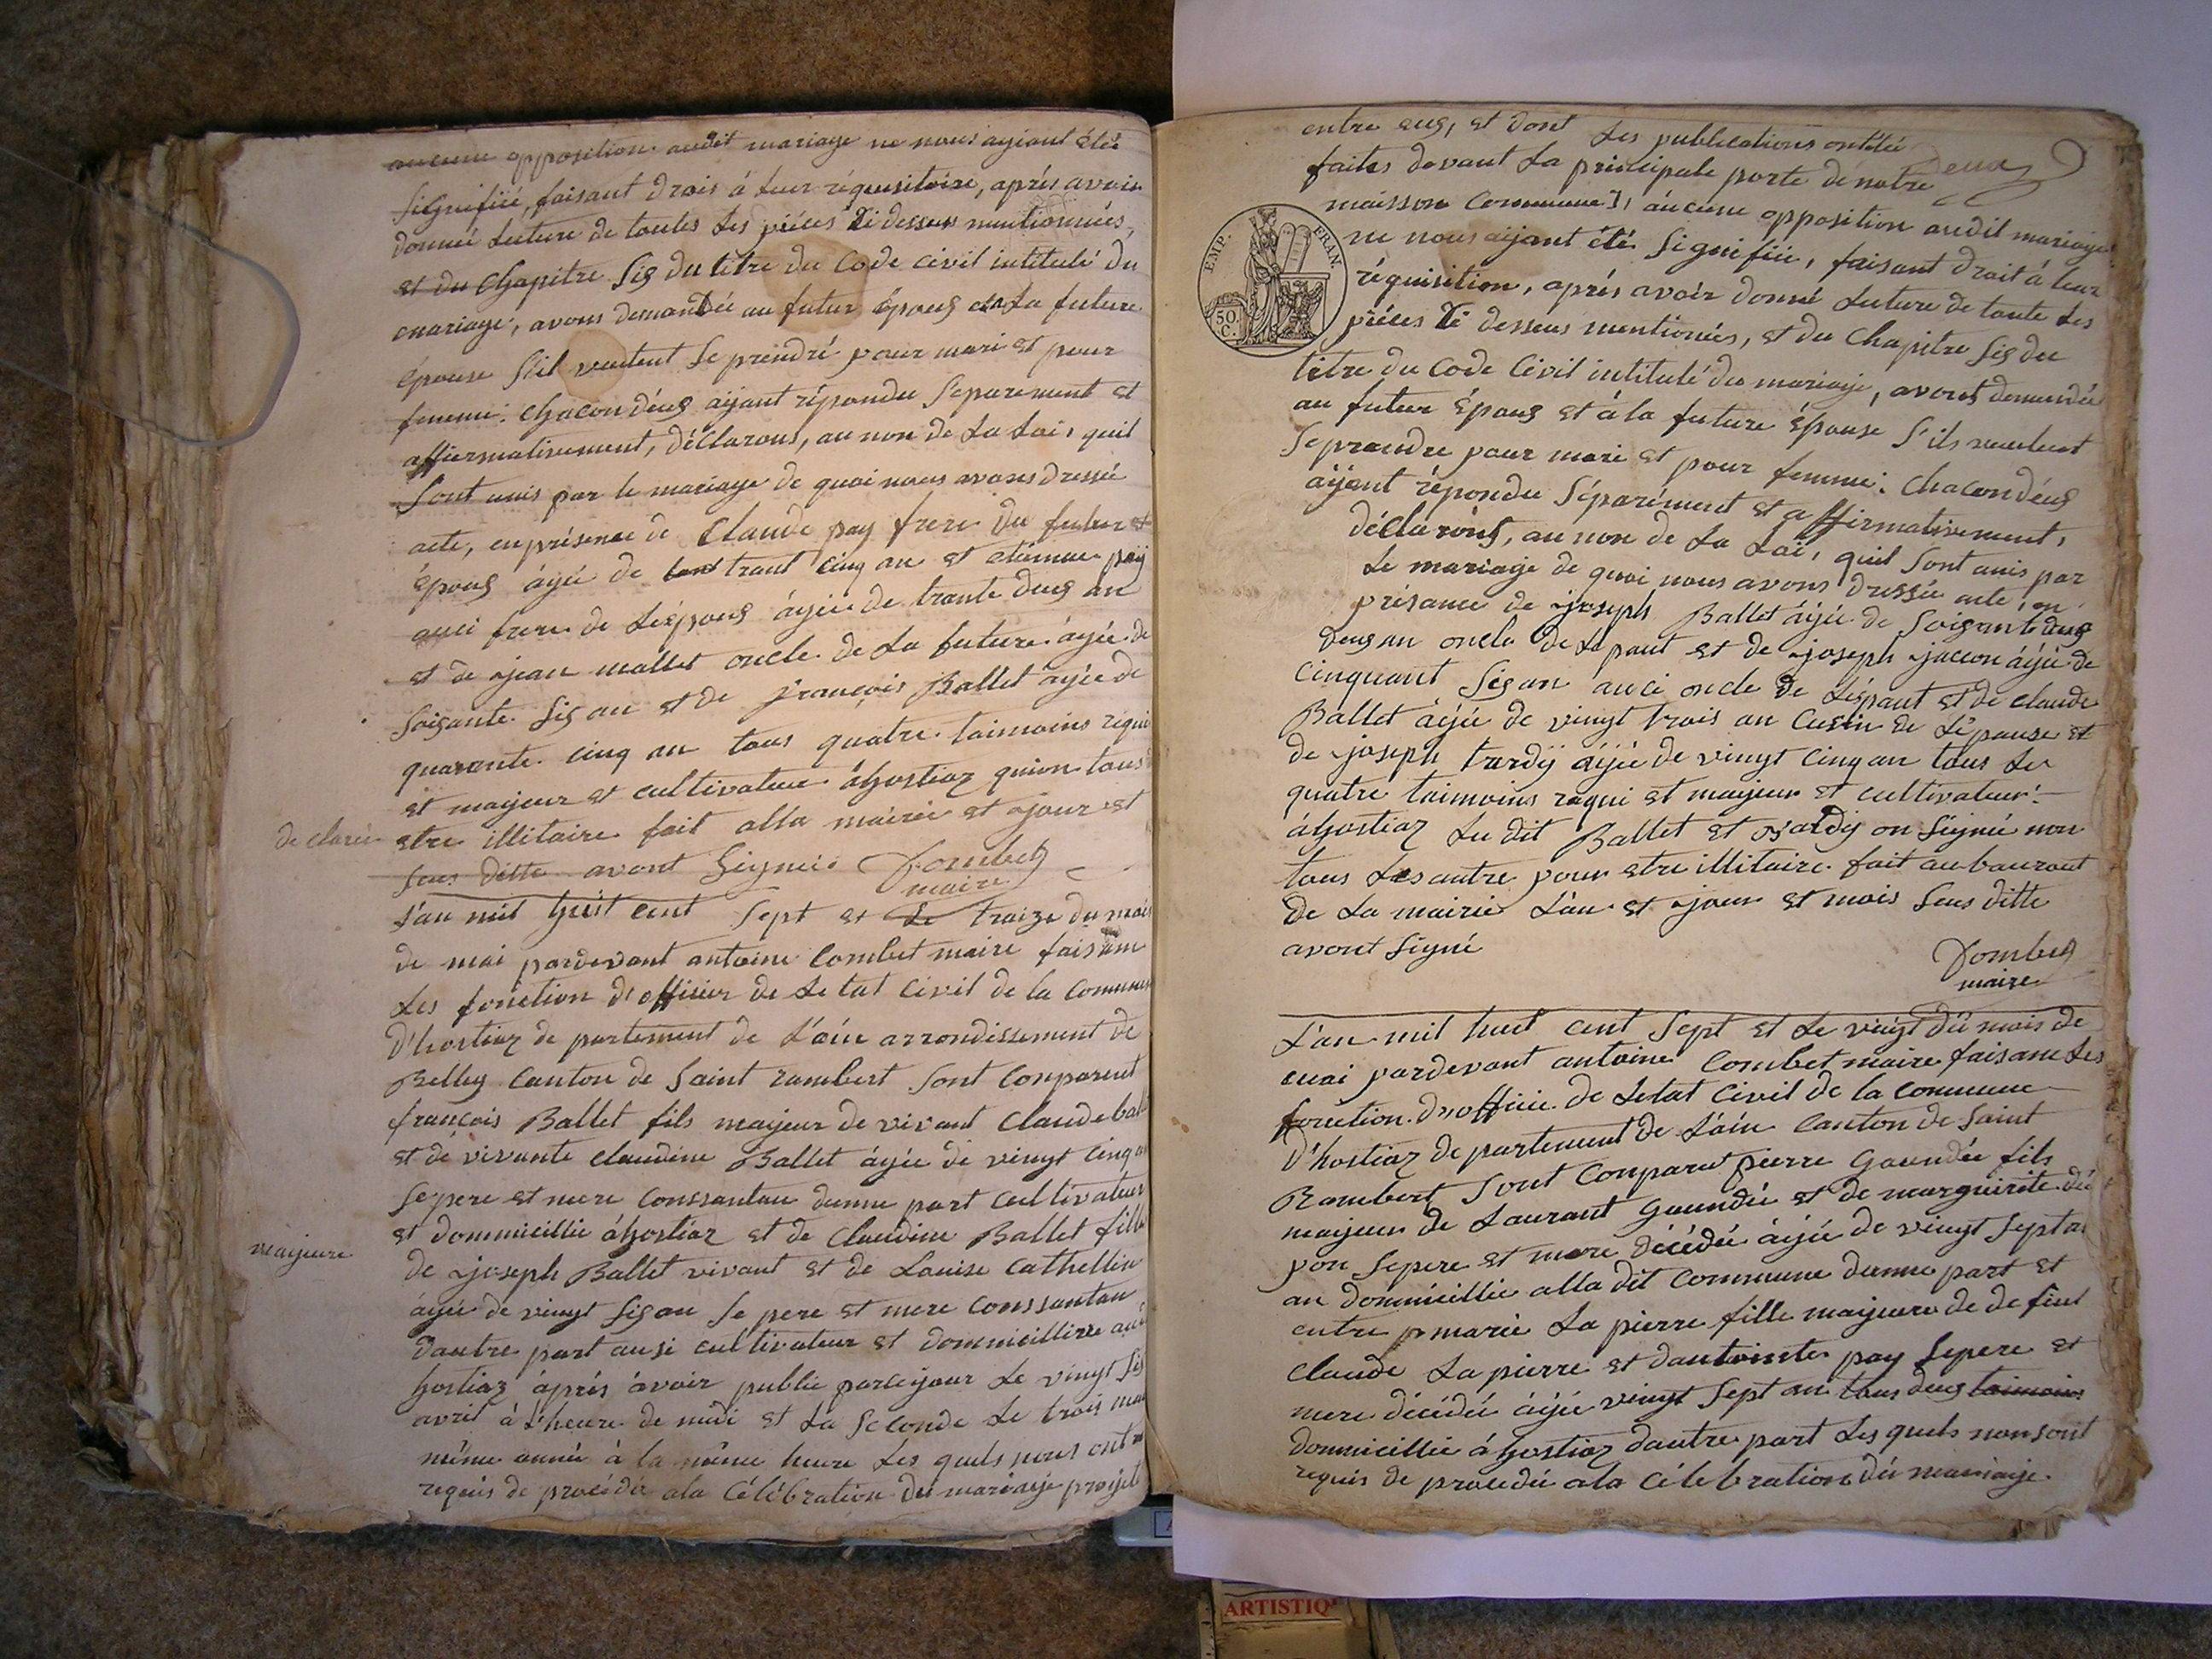 aucune opposition audit mariage ne nous ayiant étée
signifiéé, faisant drois à leur réquisitoire, aprés avoir
donnéé Lecture de toutes Les piéces Xi dessus mentionnées,
et du Chapitre Sig du titre du Code civil intitulé du
mariage, avons demandée au futur épous et La future
épouse S'il veulent Se prendré pour mari et pour
femme. Chacon déus aÿant répondu Séparement et
affirmativement, déClarons, au non de La Loi, quil
Sont unis par le mariage de quoi nous avons dressé
acte, en présence de Claude pay frere du futur et
Épous âgé de trant cinq an et etienne paÿ
auci frere de L'épous âyée de trante deus an
et de jean mallet oncle de La future âyée de
Soisante Sis an et de françois Ballet âyée de
quarante cinq an tous quatre taimoins requi
et mayeur et cultivateur âhostiaz quion tous
de clarée
etre illitaire fait alla mairie et ajour et
Sus ditte avont Signéé Combet
maire
L'an mil huit cent Sept et Le traize du mois
de mai pardevant antoine Combet maire faisam
Les fonction d'offisier de Le tat civil de la Commune
D'hostiaz de partement de L'ain arrondissement de
Belley Canton de Saint rambert Sont Conparent
françois Ballet fils mayeur de vivant Claude bal
et dé vivante claudine Ballet âyée de vingt cinq an
Se pere et mere Conssantan dunne part Cultivateur
et dommicillie âhostiaz et de Claudine Ballet fille
mayeure
de joseph Ballet vivant et de Louise Cathellin
âyée de vingt Sis an Se pere et mere Conssantan
dautre part ausi cultivateur et dommicillire au
hostiaz aprés avoir publie par le jour Le vingt Sis
avril à L'heure de midi et La Seconde Le trois mai
même année à la même heure Les quels nous ont
requis de procédé ala Célébration du mariage projeté
entre eus, et dont Les publications ontété
deux
faites devant La principale porte de notre
maisson Commune, aucune opposition audit mariage
ne nous aÿant été Signifiée, faisant droit à leur
EMP. FRAN.
50. C.
réquisition, aprés avoir donné Lecture de toute Les
piéces Xi dessus mentionés, et du Chapitre Sis du
titre du Code Civil intitulé du mariage, avont demandée
au futur Épous et à la future épouse S'ils veulent
Se prendre pour mari et pour femme. Chacon déus
aÿant répondu Séparément et affirmativement,
déClarons, au non de La Loi, quil Sont unis par
Le mariage de quoi nous avons dressée acte, en
présance de joseph Ballet âyée de Soisante deus
an oncle de L'epaut et de joseph jaccon âyée de
Cinquant Sis an auci oncle de L'épaut et de Claude
Ballet âyée de vingt trois an Cusin de L'épause et
de joseph tardÿ âyée de vingt Cinq an tous Le
quatre taimoins requi et mayeur et cultivateur
âhostiaz Lu dit Ballet et tardy on Signée non
tous Les autre pour etre illitaire fait au bauraut
de La mairie L'an et jour et mois Sus ditte
avont Signé
Combet
maire
L'an mil huit cent Sept et Le vingt du mois de
mai pardevant antoine Combet maire faisam Les
fonction d'offisie de Letat Civil de la Commune
D'hostiaz de partement de L'ain Canton de Saint
Rambert Sont Conparut pierre Gaundée fils
mayeur de Laurant Gaundée et de marguerite du
pon Se pere et mere décédée âyée de vingt Sept an
an dommicillie alla dit Commune dunne part et
entre marie La pierre fille mayeure de defunt
Claude La pierre et dantointe pay Se pere et
mere décédé âyée vingt Sept an tous deus taimoins
dommicillie âhostiaz dautre part Les quels nons ont
requis de procédée ala Célebration du mariage.
ARTISTIQ